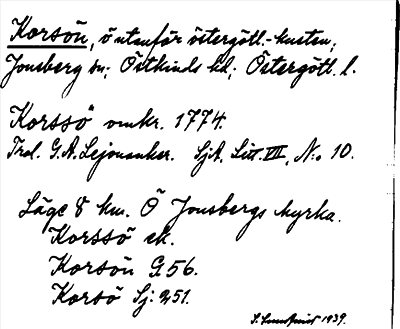 Korsön, ö utanför östergötl.-kusten;
Jonsberg sn; Östkinds hd; Östergötl. l.
Korssö omkr. 1774.
Trol. G. A. Lejonanker. SjA, Litt. VII, No 10.
Läge 8 km. Ö Jonsbergs kyrka.
Korssö ek.
Korsön G 56.
Korsö Sj: 251.
S. Lundqvist 1939.